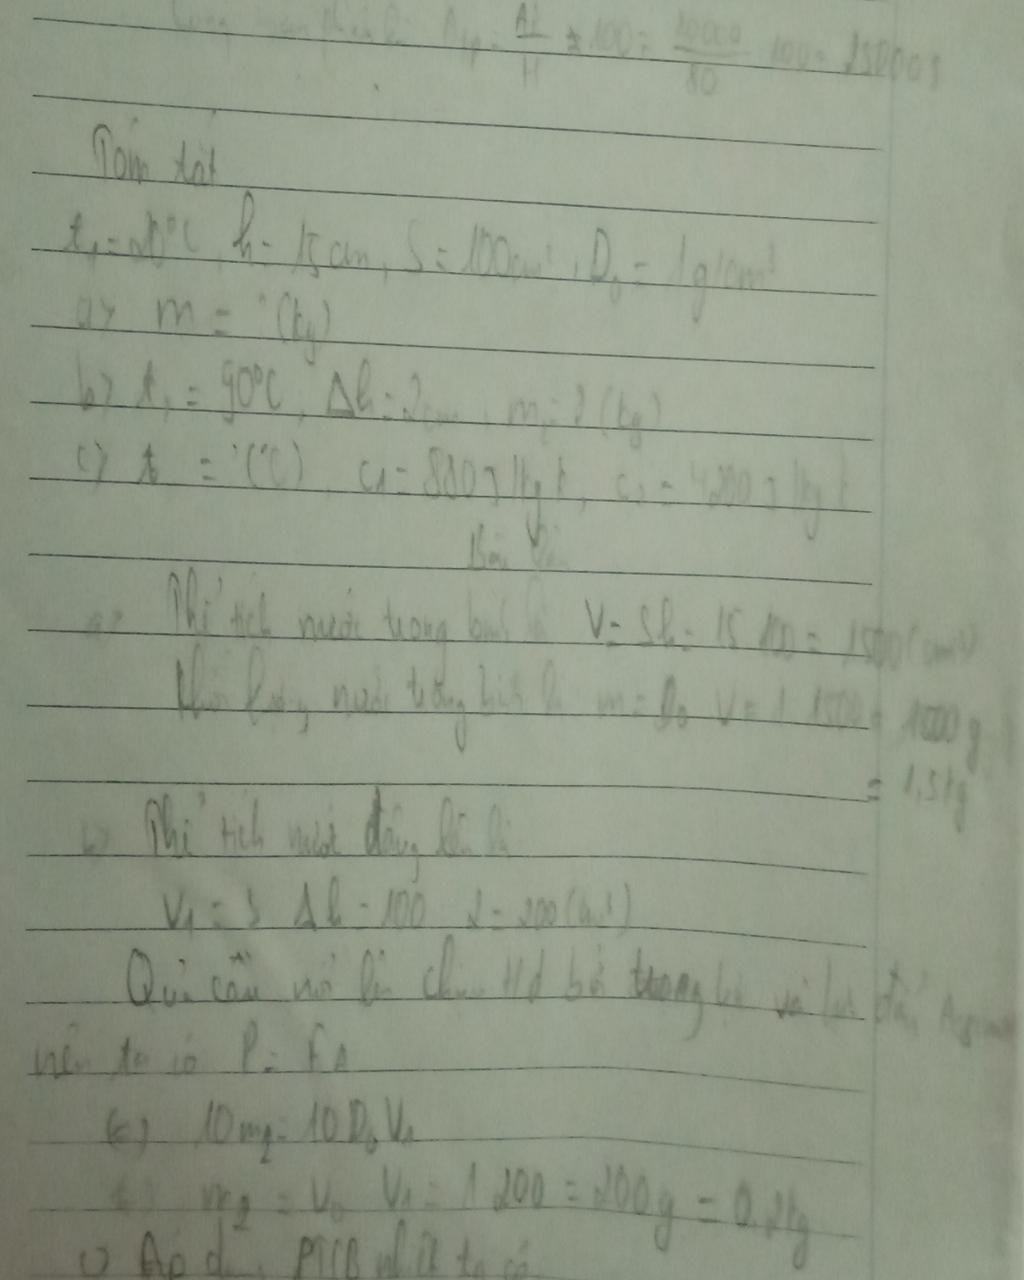 Tóm tắt
t₁ = 20°C, h = 15 cm, S = 100cm², D₀ = 1g/cm³
a) m = ? (kg)
b) t₁ = 90°C, Δh = 2cm, m = ? (kg)
c) t = ? (°C) c₁ = 880 J/kg k, c₂ = 4200 J/kg k
Bài
a) Thể tích nước trong bình là V = Sh = 15.100 = 1500 (cm³)
Khối lượng nước trong bình là m = D₀ V = 1.1500 =
= 1,5kg
b) Thể tích nước dâng lên là
V₁ = S Δh = 100.2 = 200 (cm³)
Quả cầu nổi lên chịu t/d bởi trọng lực và lực đẩy
nên ta có P = FA
(=) 10m₂ = 10 D₀ V₁
m₂ = V₁ = 1.200 = 200g = 0,2kg
c) Áp dụng PTCB nhiệt ta có